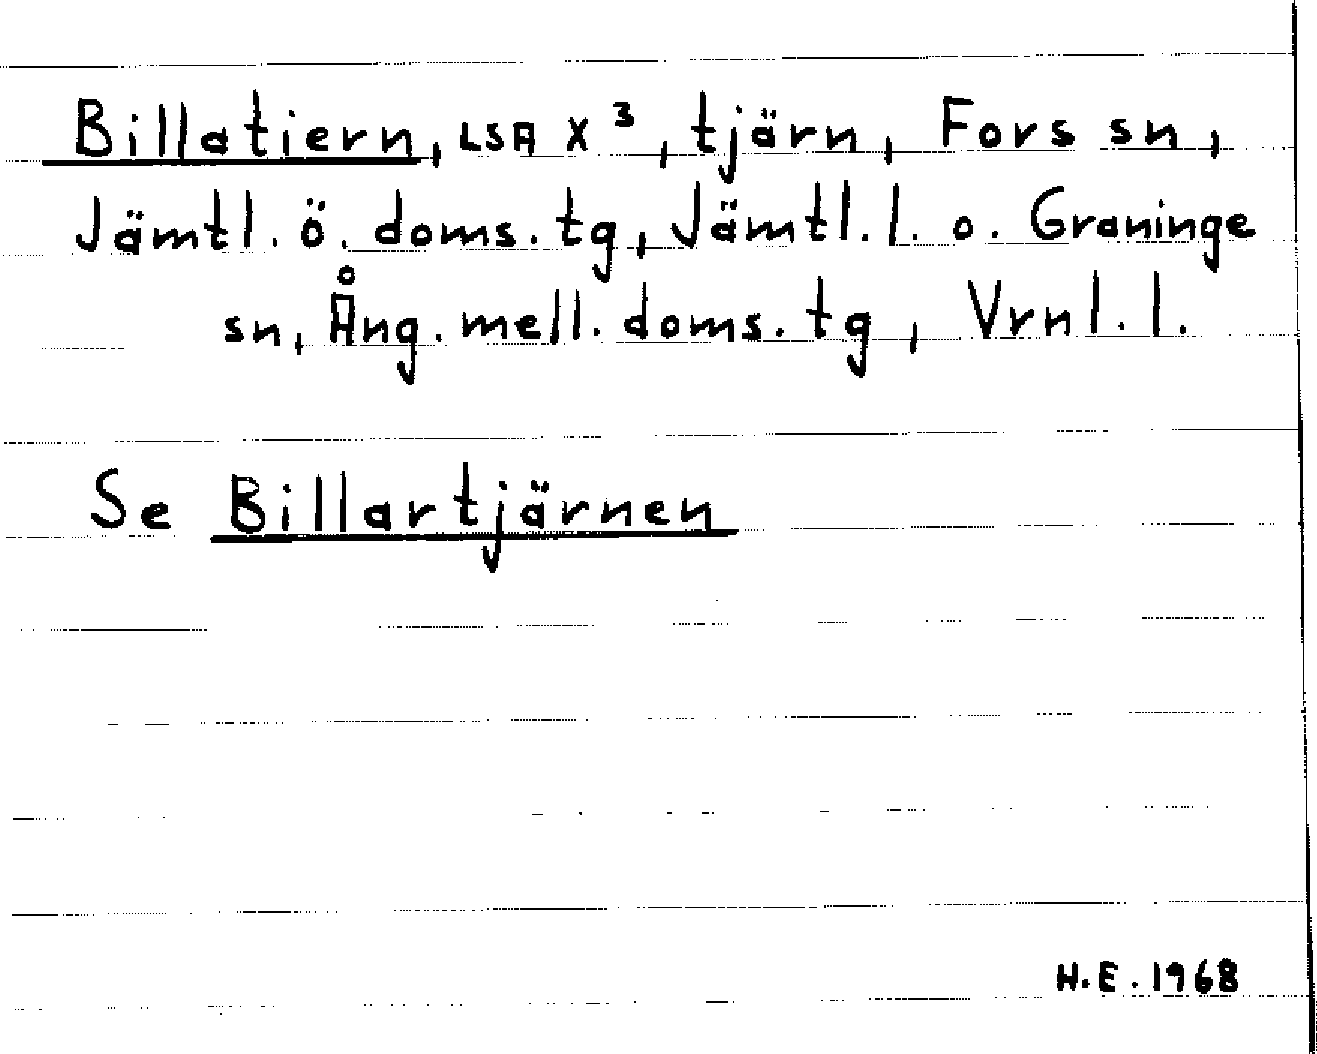 Billatiern, LSA X³, tjärn, Fors sn,
Jämtl. ö. doms. tg, Jämtl. l. o. Graninge
sn, Ång. mell. doms. tg, Vrnl. l.
Se Billartjärnen
H.E. 1968